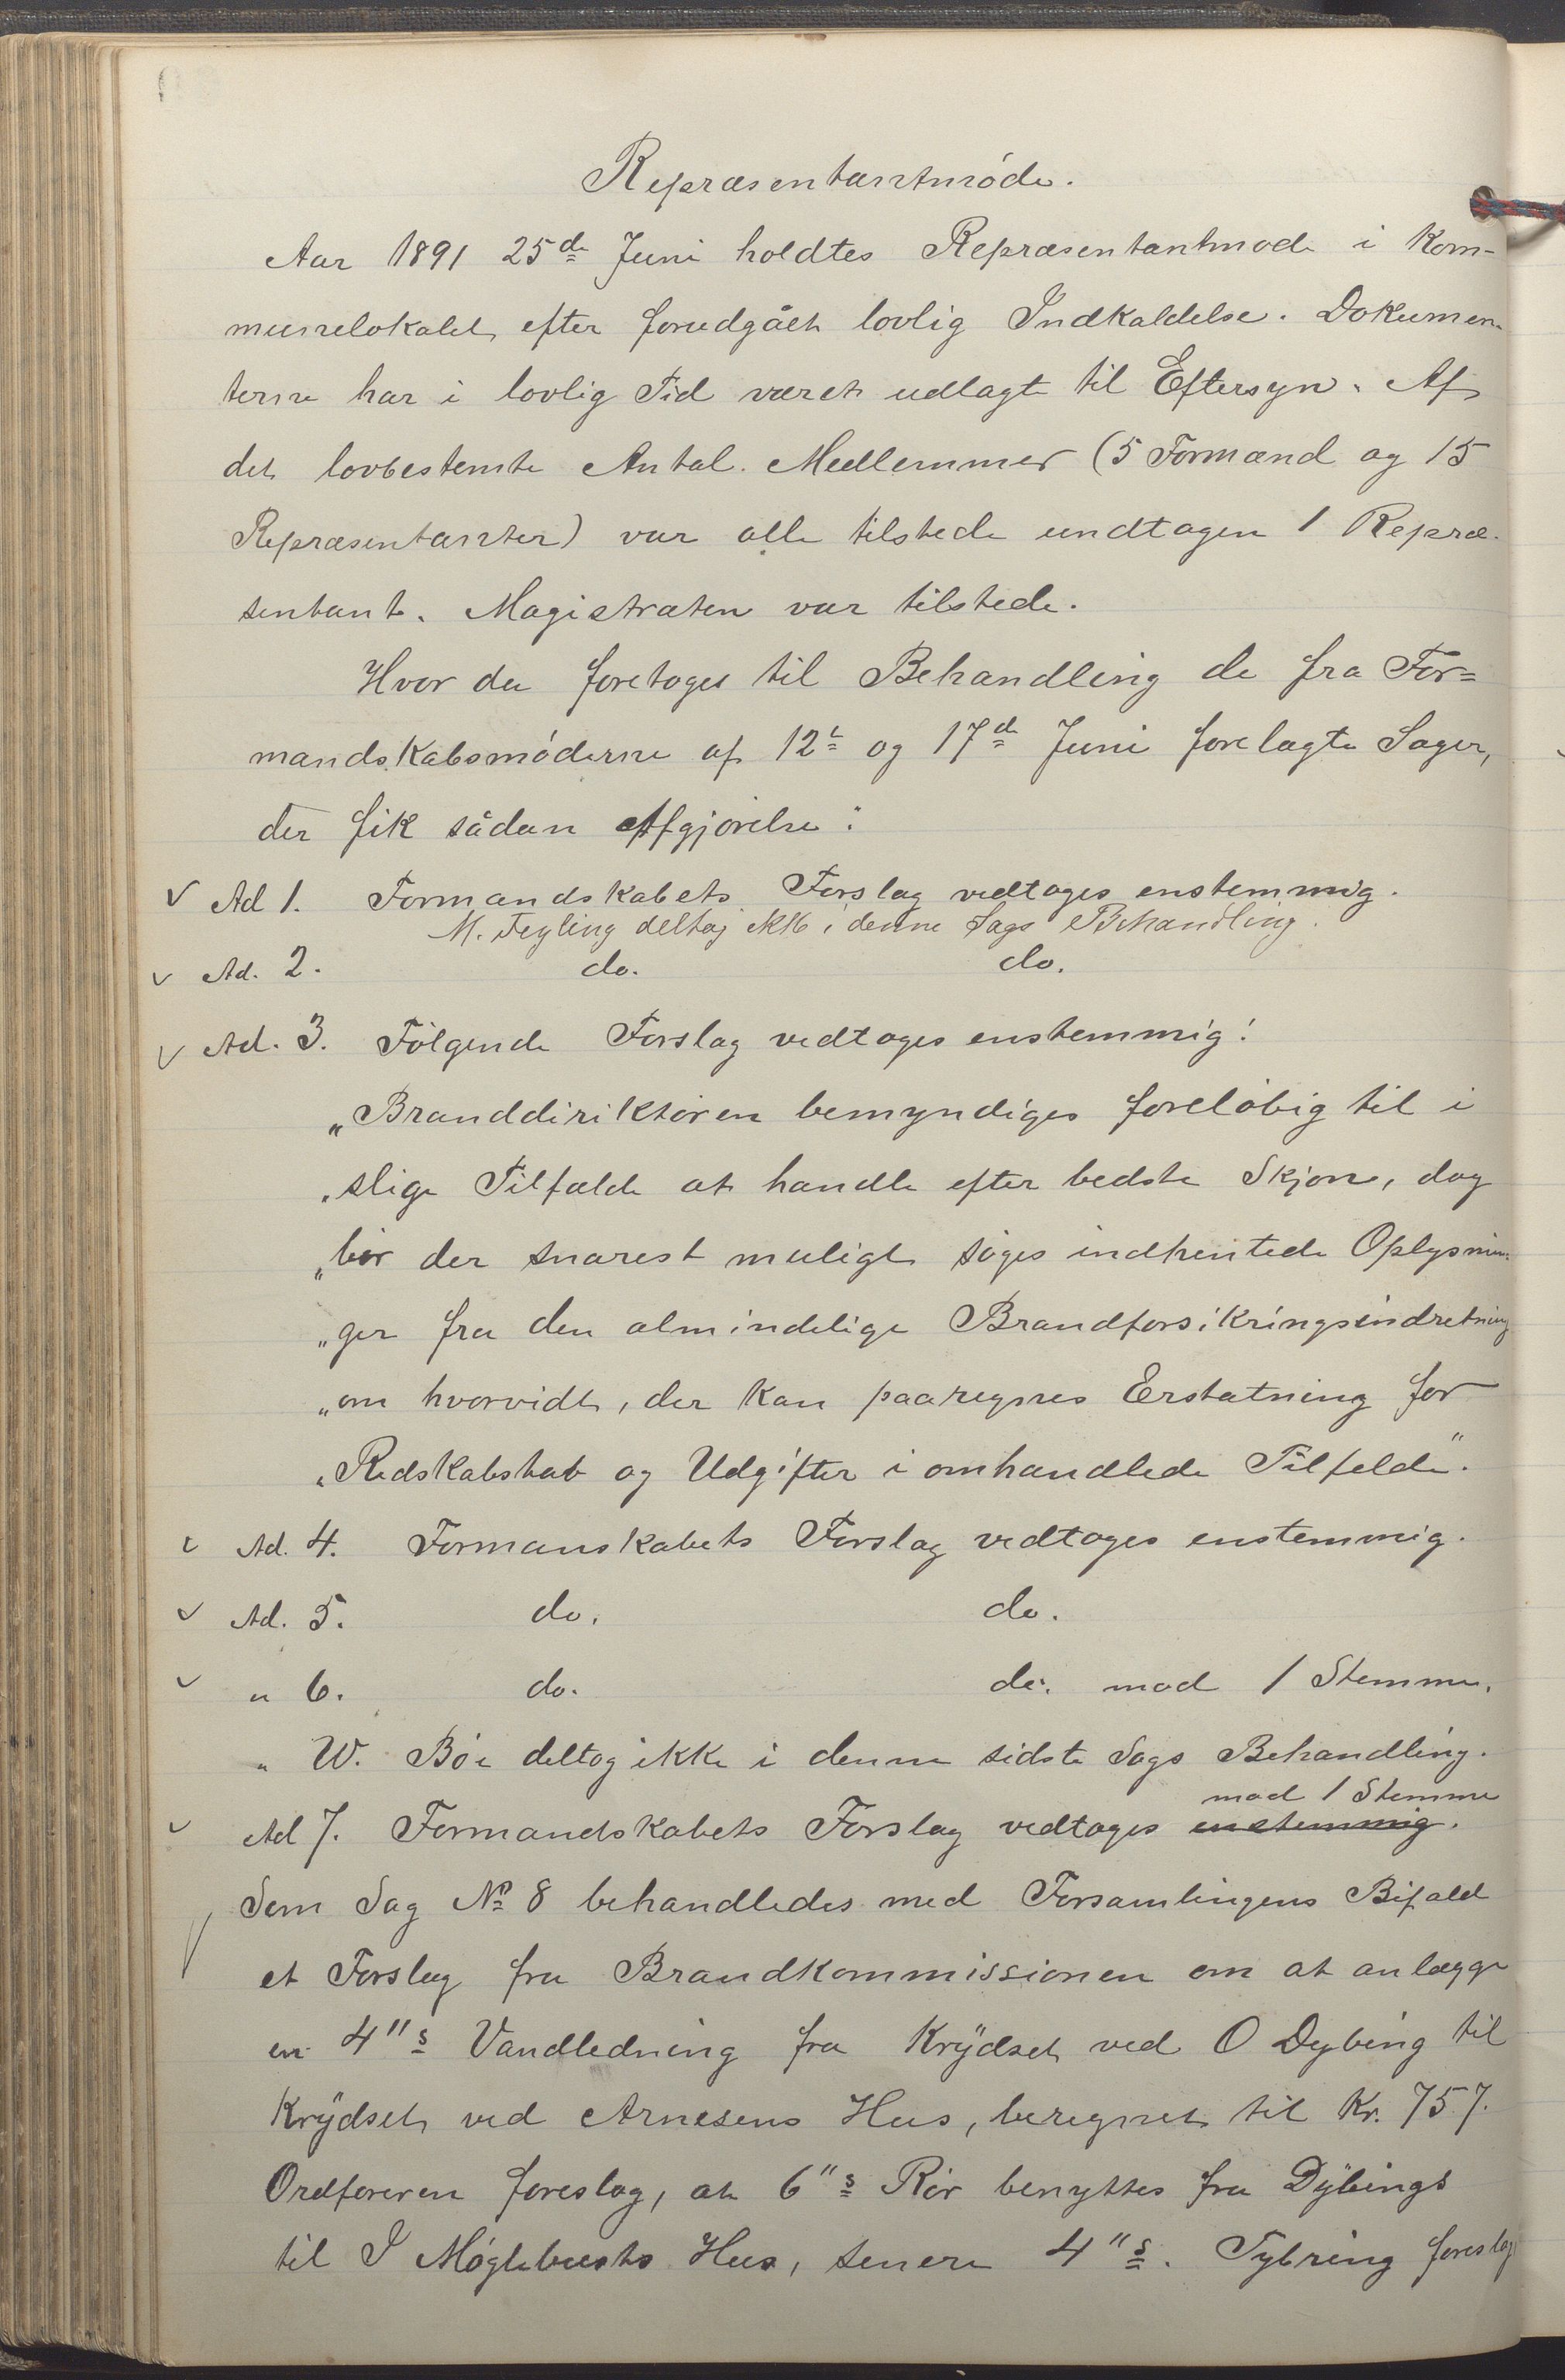 Repræsentantmöde.
Aar 1891 25de Juni holdtes Repræsentantmode i Kom-
munelokalet efter forudgået lovlig Indkaldelse. Dokumen-
terne har i lovlig Tid været udlagte til Eftersyn. Af
det lovbestemte Antal Medlemmer (5 Formænd og 15
Repræsentanter) var alle tilstede undtagen 1 Repræ-
sentant. Magistraten var tilstede.
Hvor da foretoges til Behandling de fra For=
mandskabsmöderne af 12te og 17de Juni forelagte Sager,
der fik sådan Afgjörelse:
Ad 1. Formandskabets Forslag vedtoges enstemmig.
M. Tegling deltog ikke i denne Sags Behandling.
Ad. 2. do. do.
Ad. 3. Fölgende Forslag vedtoges enstemmig:
„Branddirektören bemyndiges forelöbig til i
„slige Tilfælde at handle efter bedste Skjön, dog
„bör der snarest muligt söges indhentede Oplysnin-
„ger fra den almindelige Brandforsikringsindretning
„om hvorvidt, der kan paaregnes Erstatning for
„Redskabstab og Udgifter i omhandlede Tilfelde".
Ad. 4. Formanskabets Forslag vedtoges enstemmig.
Ad. 5. do. do.
„ 6. do. do. mod 1 Stemme.
„ W. Böe deltog ikke i denne sidste Sags Behandling.
mod 1 Stemme
Ad 7. Formandskabets Forslag vedtoges enstemmig.
Som Sag No 8 behandledes med Forsamlingens Bifald
et Forslag fra Brandkommissionen om at anlægge
en 4"s Vandledning fra Krÿdset ved O Dybing til
Krÿdset ved Arnesens Hus, beregnet til Kr. 757.
Ordföreren foreslog, at 6"s Rör benyttes fra Dÿbings
til I Möglebusts Hus, senere 4"s. Tybring foreslog